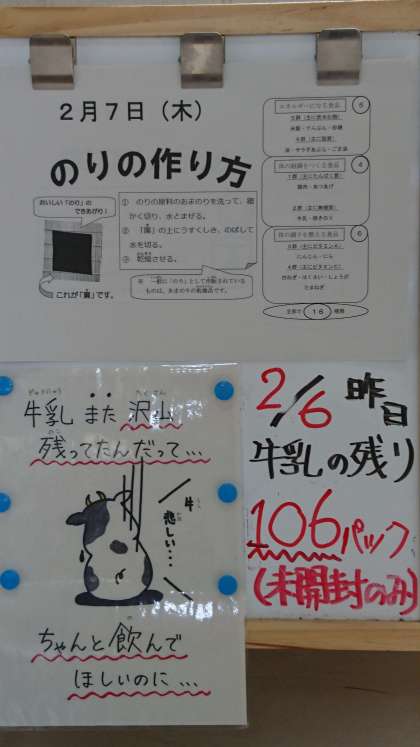 2月7日（木）
のりの作り方
おいしい「のり」の
できあがり！
これが「簀」です。
① のりの原料のあまのりを洗って、細
かく切り、水とまぜる。
② 「簀」の上にうすくしき、のばして
水を切る。
③ 乾燥させる。
かんそう
※ 一般に「のり」として市販されている
ものは、あまのりの乾燥品です。
エネルギーになる食品
5
米飯・でんぷん・砂糖
油・サラダあぶら・ごま油
体の組織をつくる食品
4
牛乳・焼きのり
体の調子を整える食品
6
にんじん・にら
白ねぎ・はくさい・しょうが
たまねぎ
全部で 16 種類
ぎゅうにゅう たくさん
牛乳 また 沢山
のこ
残ってたんだって…
うし
牛
かな
悲しい…
の
ちゃんと飲んで
ほしいのに…
2/6 昨日
牛乳の残り
106パック
(未開封のみ)